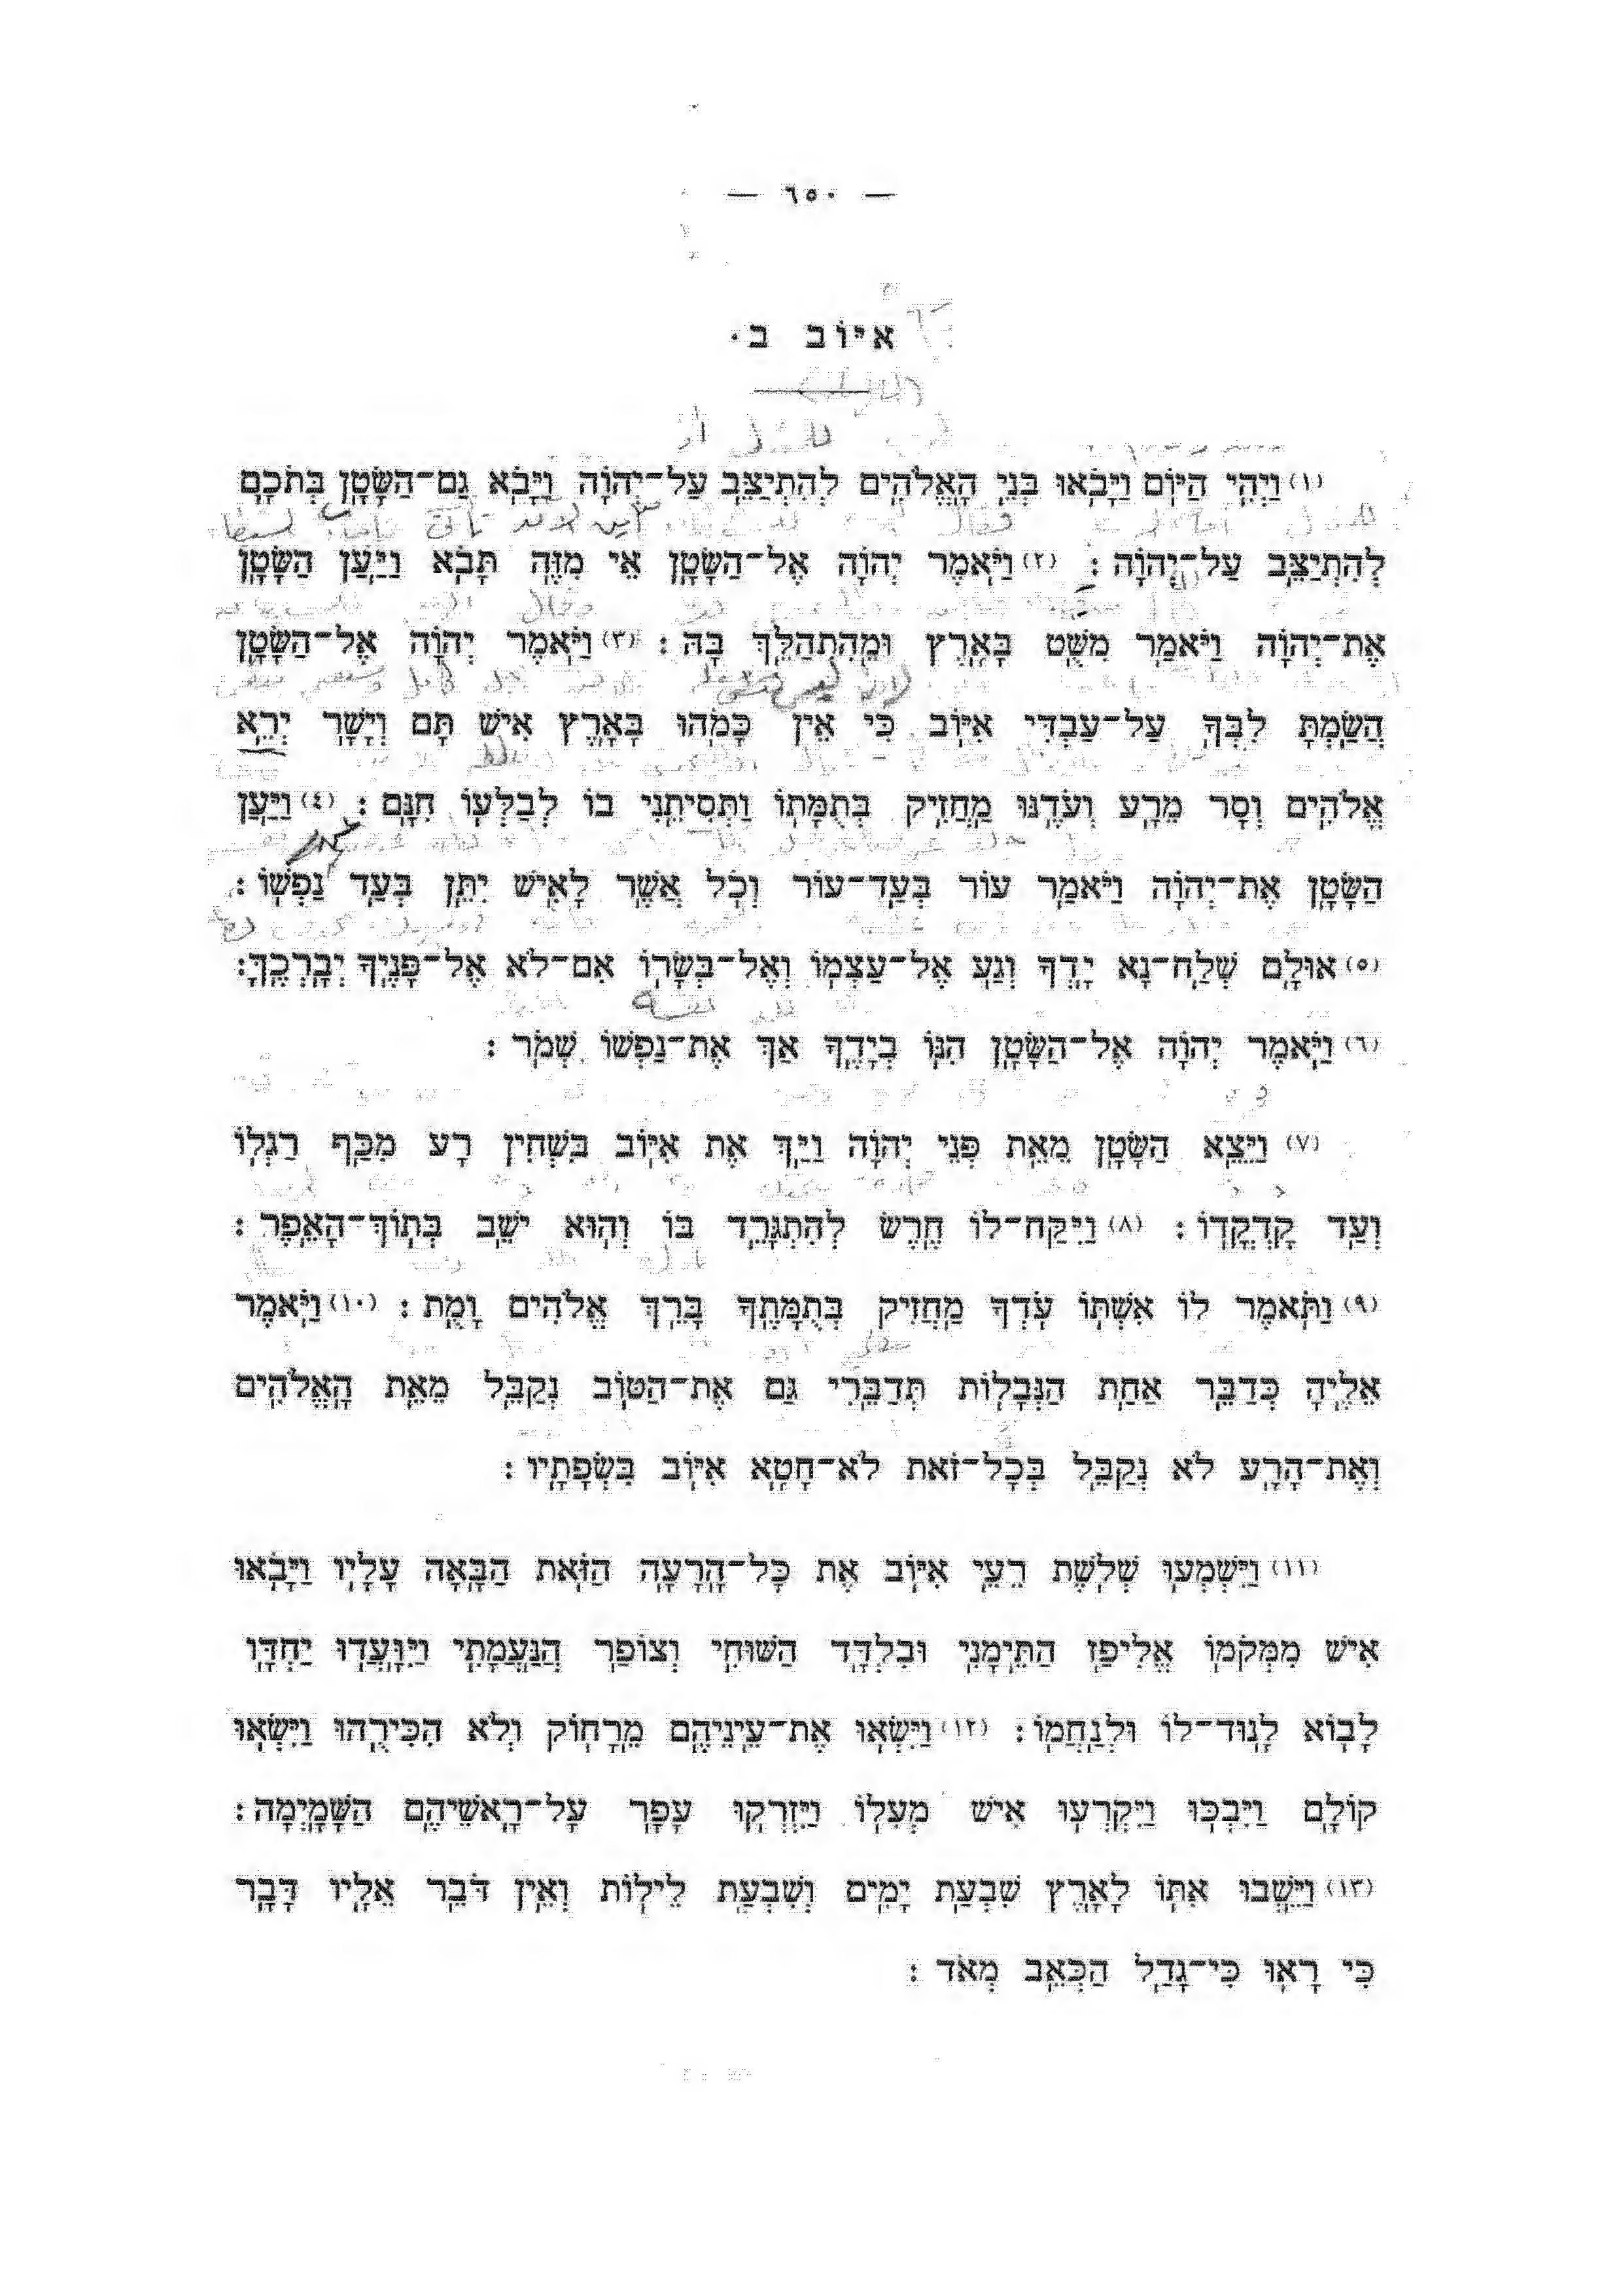 — ٦٥٠ —
אִיּוֹב ב.
(١) וַיְהִי הַיּוֹם וַיָּבֹאוּ בְּנֵי הָאֱלֹהִים לְהִתְיַצֵּב עַל־יְהוָֹה וַיָּבֹא גַם־הַשָּׂטָן בְּתֹכָם
לְהִתְיַצֵּב עַל־יְהוָֹה : (٢) וַיֹּאמֶר יְהוָֹה אֶל־הַשָּׂטָן אֵי מִזֶּה תָּבֹא וַיַּעַן הַשָּׂטָן
אֶת־יְהוָֹה וַיֹּאמַר מִשֻּׁט בָּאָרֶץ וּמֵהִתְהַלֵּךְ בָּהּ : (٣) וַיֹּאמֶר יְהוָֹה אֶל־הַשָּׂטָן
הֲשַׂמְתָּ לִבְּךָ עַל־עַבְדִּי אִיּוֹב כִּי אֵין כָּמֹהוּ בָּאָרֶץ אִישׁ תָּם וְיָשָׁר יְרֵא
אֱלֹהִים וְסָר מֵרָע וְעֹדֶנּוּ מַחֲזִיק בְּתֻמָּתוֹ וַתְּסִיתֵנִי בוֹ לְבַלְּעוֹ חִנָּם : (٤) וַיַּעַן
הַשָּׂטָן אֶת־יְהוָֹה וַיֹּאמַר עוֹר בְּעַד־עוֹר וְכֹל אֲשֶׁר לָאִישׁ יִתֵּן בְּעַד נַפְשׁוֹ :
(٥) אוּלָם שְׁלַח־נָא יָדְךָ וְגַע אֶל־עַצְמוֹ וְאֶל־בְּשָׂרוֹ אִם־לֹא אֶל־פָּנֶיךָ יְבָרְכֶךָּ:
(٦) וַיֹּאמֶר יְהוָֹה אֶל־הַשָּׂטָן הִנּוֹ בְיָדֶךָ אַךְ אֶת־נַפְשׁוֹ שְׁמֹר :
(٧) וַיֵּצֵא הַשָּׂטָן מֵאֵת פְּנֵי יְהוָֹה וַיַּךְ אֶת אִיּוֹב בִּשְׁחִין רָע מִכַּף רַגְלוֹ
וְעַד קָדְקֳדוֹ : (٨) וַיִּקַּח־לוֹ חֶרֶשׂ לְהִתְגָּרֵד בּוֹ וְהוּא יֹשֵׁב בְּתוֹךְ־הָאֵפֶר :
(٩) וַתֹּאמֶר לוֹ אִשְׁתּוֹ עֹדְךָ מַחֲזִיק בְּתֻמָּתֶךָ בָּרֵךְ אֱלֹהִים וָמֻת : (١٠) וַיֹּאמֶר
אֵלֶיהָ כְּדַבֵּר אַחַת הַנְּבָלוֹת תְּדַבֵּרִי גַּם אֶת־הַטּוֹב נְקַבֵּל מֵאֵת הָאֱלֹהִים
וְאֶת־הָרָע לֹא נְקַבֵּל בְּכָל־זֹאת לֹא־חָטָא אִיּוֹב בִּשְׂפָתָיו :
(١١) וַיִּשְׁמְעוּ שְׁלֹשֶׁת רֵעֵי אִיּוֹב אֶת כָּל־הָרָעָה הַזֹּאת הַבָּאָה עָלָיו וַיָּבֹאוּ
אִישׁ מִמְּקֹמוֹ אֱלִיפַז הַתֵּימָנִי וּבִלְדַּד הַשּׁוּחִי וְצוֹפַר הַנַּעֲמָתִי וַיִּוָּעֲדוּ יַחְדָּו
לָבוֹא לָנוּד־לוֹ וּלְנַחֲמוֹ : (١٢) וַיִּשְׂאוּ אֶת־עֵינֵיהֶם מֵרָחוֹק וְלֹא הִכִּירֻהוּ וַיִּשְׂאוּ
קוֹלָם וַיִּבְכּוּ וַיִּקְרְעוּ אִישׁ מְעִלוֹ וַיִּזְרְקוּ עָפָר עַל־רָאשֵׁיהֶם הַשָּׁמָיְמָה :
(١٣) וַיֵּשְׁבוּ אִתּוֹ לָאָרֶץ שִׁבְעַת יָמִים וְשִׁבְעַת לֵילוֹת וְאֵין דֹּבֵר אֵלָיו דָּבָר
כִּי רָאוּ כִּי־גָדַל הַכְּאֵב מְאֹד :